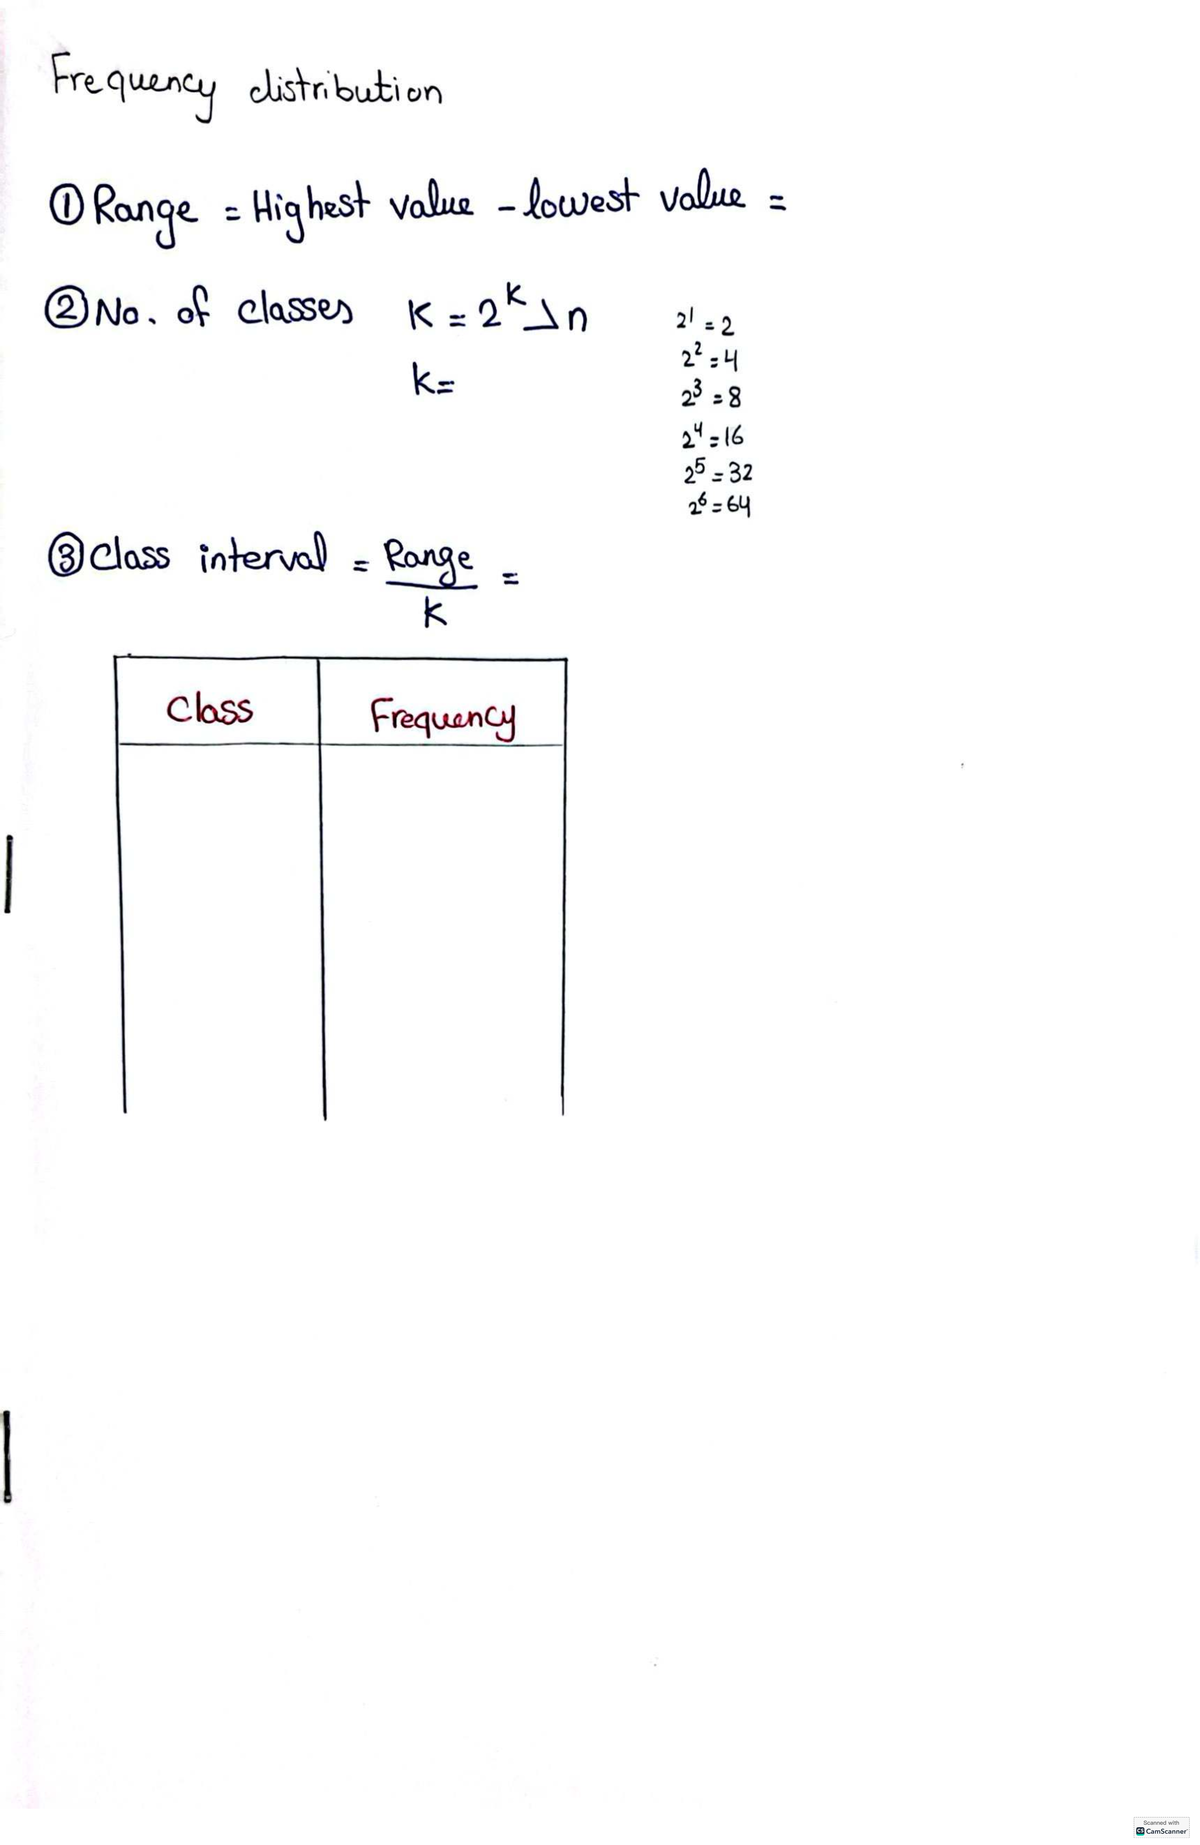 Frequency distribution
① Range = Highest value - lowest value =
② No. of classes K = 2^K > n
k=
2^1 = 2
2^2 = 4
2^3 = 8
2^4 = 16
2^5 = 32
2^6 = 64
③ Class interval = Range / K =
Class Frequency
Scanned with
CS CamScanner